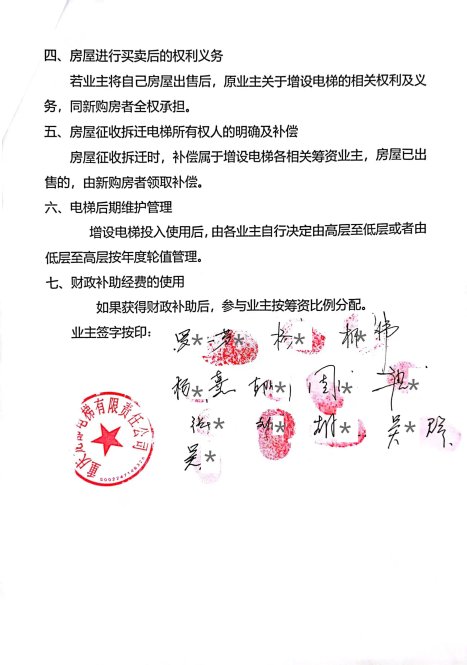 四、房屋进行买卖后的权利义务
若业主将自己房屋出售后，原业主关于增设电梯的相关权利及义
务，同新购房者全权承担。
五、房屋征收拆迁电梯所有权人的明确及补偿
房屋征收拆迁时，补偿属于增设电梯各相关筹资业主，房屋已出
售的，由新购房者领取补偿。
六、电梯后期维护管理
增设电梯投入使用后，由各业主自行决定由高层至低层或者由
低层至高层按年度轮值管理。
七、财政补助经费的使用
如果获得财政补助后，参与业主按筹资比例分配。
业主签字按印：
罗* * 杨* *
杨* 胡* 周* *
* * 胡* 吴*
吴*
重庆 电梯有限责任公司